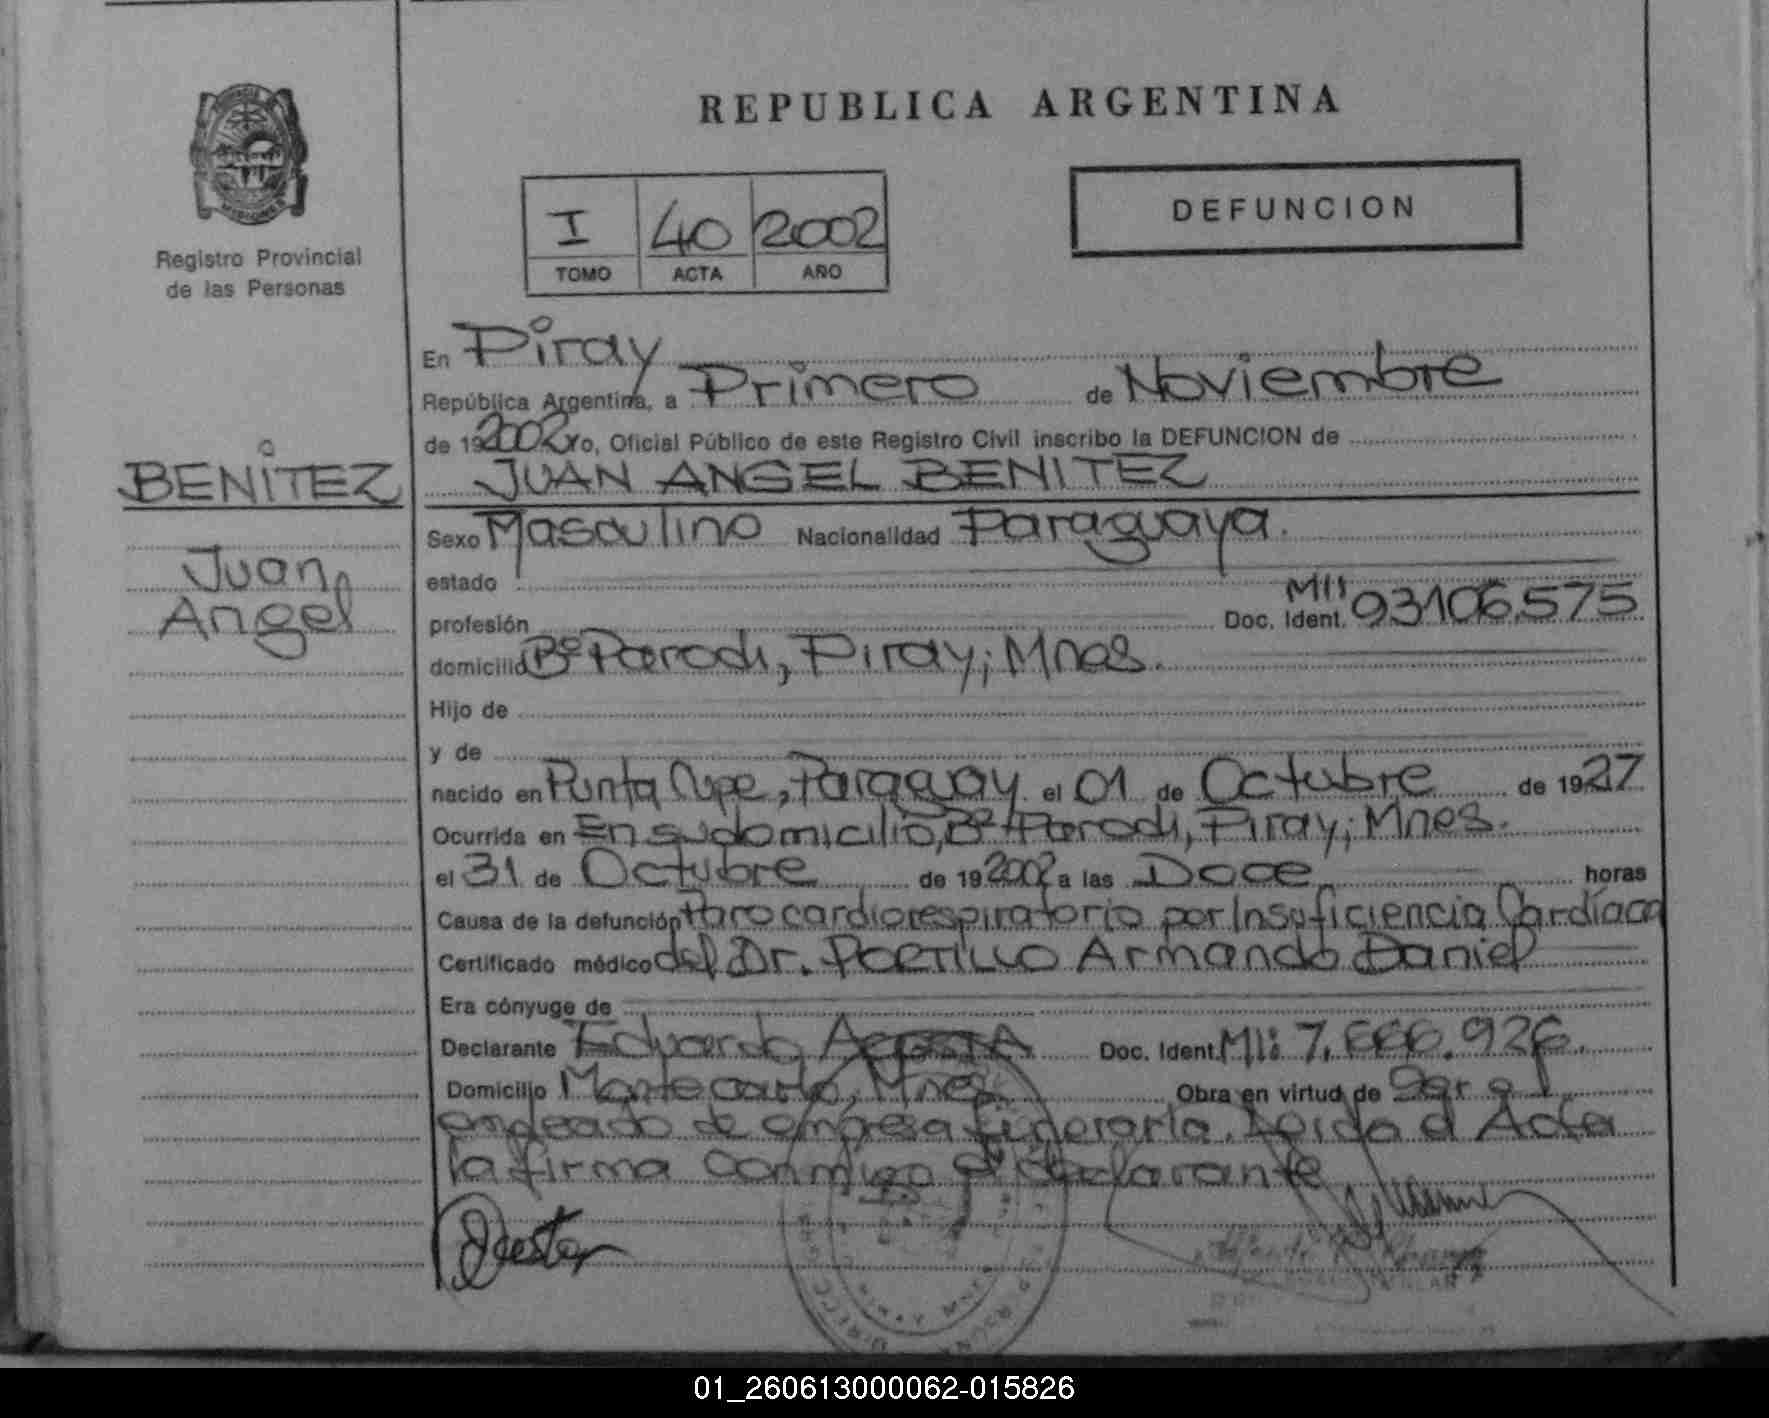 REPUBLICA ARGENTINA
DEFUNCION
I 40 2002
TOMO ACTA AÑO
Registro Provincial
de las Personas
BENITEZ
Juan
Angel
En Piray
República Argentina, a Primero de Noviembre
de 192002 Yo, Oficial Público de este Registro Civil inscribo la DEFUNCION de
JUAN ANGEL BENITEZ
Sexo Masculino Nacionalidad Paraguaya.
estado
profesión Doc. Ident. MI: 93106.575
domicilio Bº Parodi, Piray; Mnes.
Hijo de
y de
nacido en Punta Cupe, Paraguay el 01 de Octubre de 1927
Ocurrida en En su domicilio, Bº Parodi, Piray; Mnes.
el 31 de Octubre de 192002 a las Doce horas
Causa de la defunción Paro cardiorespiratorio por Insuficiencia Cardíaca
Certificado médico del Dr. PORTILLO Armando Daniel
Era cónyuge de
Declarante Eduardo Doc. Ident. MI: 7.666.926.
Domicilio Montecarlo, Mnes. Obra en virtud de Ser el
empleado de empresa funeraria. Leída el Acta
la firma conmigo el declarante
01_260613000062-015826